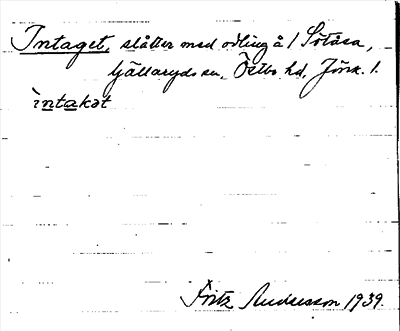 Intaget, slåtter med odling å 1 Sötåsa,
Gällaryds sn. Östbo hd. Jönk. l.
ìntakət
Fritz Andersson 1939.